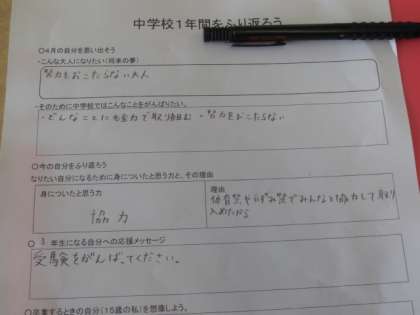 中学校1年間をふり返ろう
○4月の自分を思い出そう
・こんな大人になりたい（将来の夢）
努力をおこたらない大人
・そのために中学校ではこんなことをがんばりたい。
・どんなことにも全力で取り組む ・努力をおこたらない
○今の自分をふり返ろう
なりたい自分になるために身についたと思う力と、その理由
身についたと思う力
協力
理由
体育祭や
祭でみんなと協力して取り
○3年生になる自分への応援メッセージ
受験をがんばってください。
○卒業するときの自分（15歳の私）を想像しよう。